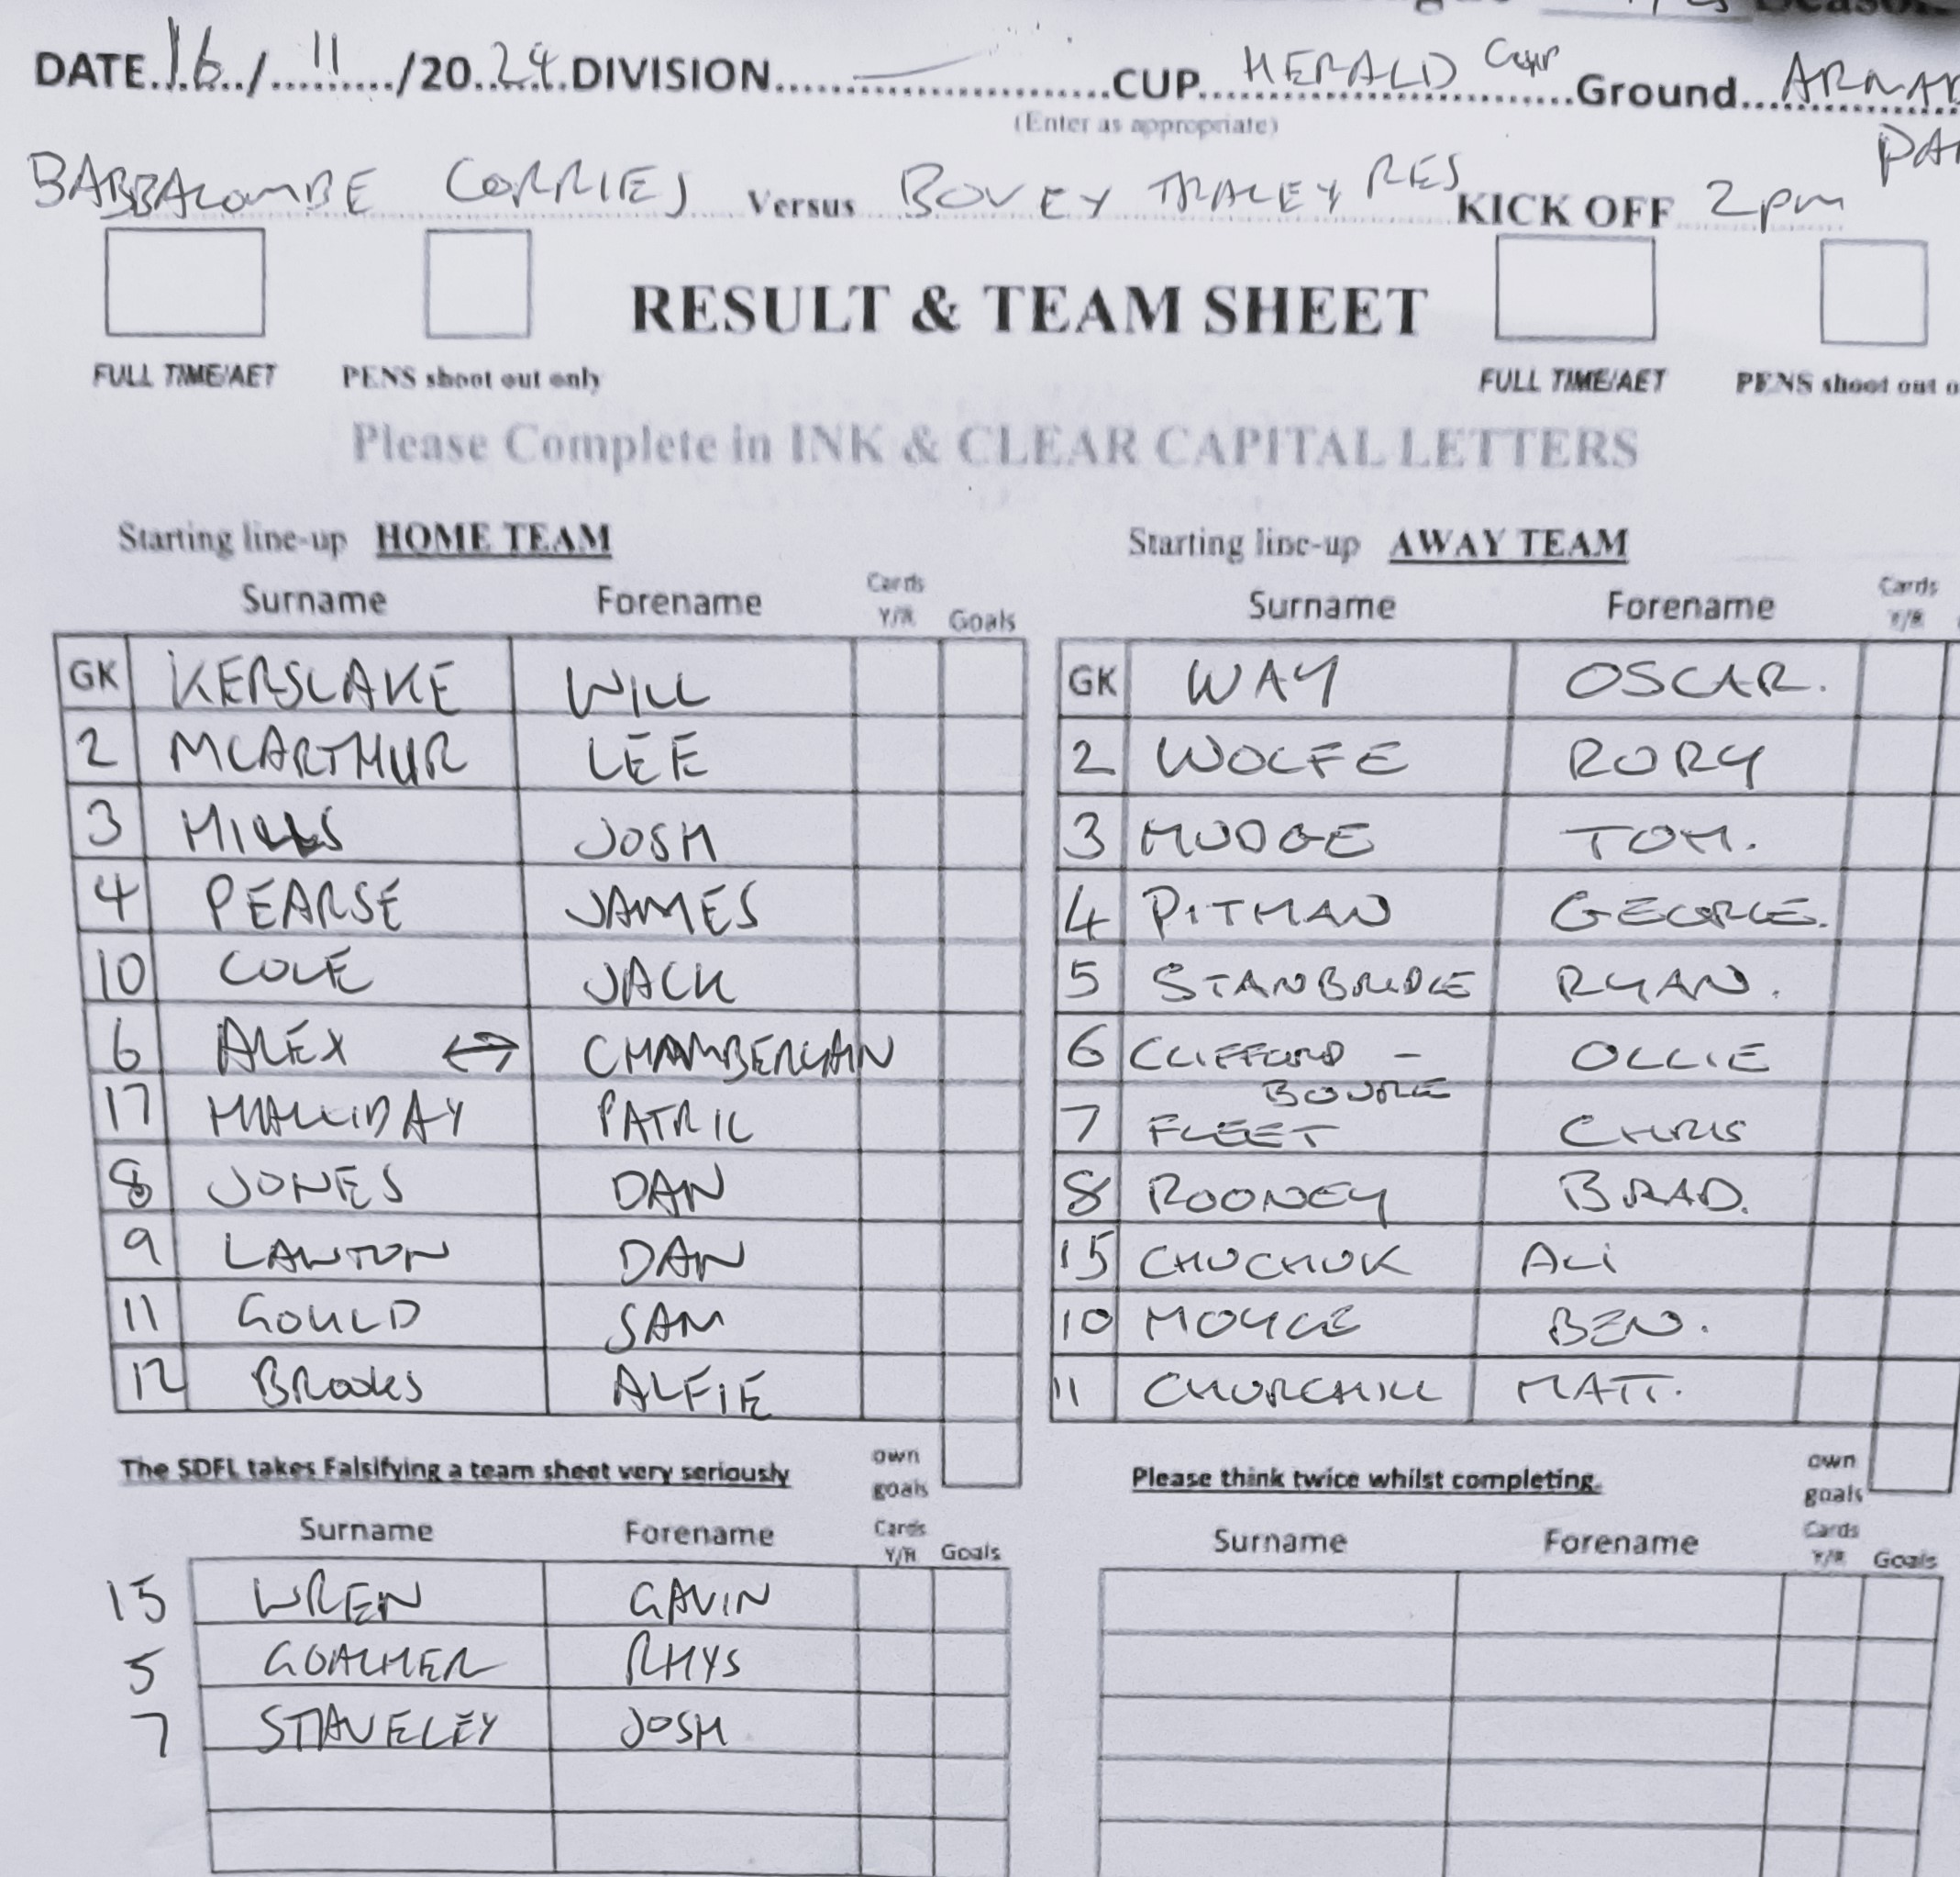 DATE 16 / 11 / 2024 DIVISION — CUP HERALD CUP Ground
(Enter as appropriate)
BABBACOMBE CORRIES Versus BOVEY TRACEY RES KICK OFF 2pm
RESULT & TEAM SHEET
FULL TIME/AET PENS shoot out only FULL TIME/AET PENS shoot out
Please Complete in INK & CLEAR CAPITAL LETTERS
Starting line-up HOME TEAM Starting line-up AWAY TEAM
Surname Forename Cards Y/R Goals Surname Forename Cards Y/R
GK KERSLAKE WILL GK WAY OSCAR.
2 MCARTHUR LEE 2 WOLFE RORY
3 MILLS JOSH 3 MUDGE TOM.
4 PEARSE JAMES 4 PITMAN GEORGE.
10 COLE JACK 5 STANBRIDGE RYAN.
6 ALEX ↔ CHAMBERLAIN 6 CLIFFORD - BOURKE OLLIE
17 HALLIDAY PATRIC 7 FLEET CHRIS
8 JONES DAN 8 ROONEY BRAD.
9 LAWTON DAN 15 CHUCHUK ALI
11 GOULD SAM 10 MOYCE BEN.
12 BROOKS ALFIE 11 CHURCHILL MATT.
The SDFL takes Falsifying a team sheet very seriously own goals Please think twice whilst completing. own goals
Surname Forename Cards Y/R Goals Surname Forename Cards Y/R Goals
15 WREN GAVIN
5 GOALHER RHYS
7 STAVELEY JOSH